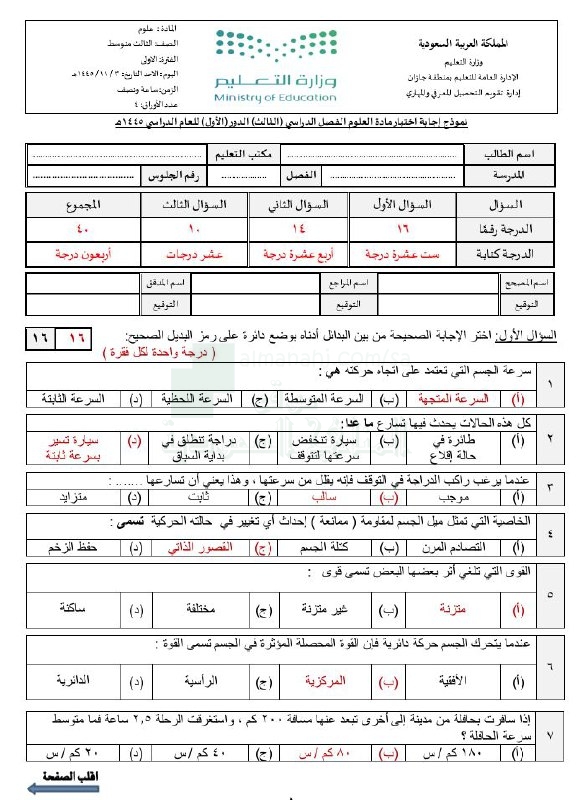 المملكة العربية السعودية
وزارة التعليم
الإدارة العامة للتعليم بمنطقة جازان
إدارة تقويم التحصيل المعرفي والمهاري
وزارة التعليم
Ministry of Education
المادة: علوم
الصف: الثالث متوسط
الفترة: الأولى
اليوم: الأحد التاريخ: ١٤٤٥/١١/٣هـ
الزمن: ساعة ونصف
عدد الأوراق: ٤
نموذج إجابة اختبار مادة العلوم الفصل الدراسي (الثالث) الدور (الأول) للعام الدراسي ١٤٤٥هـ
اسم الطالب مكتب التعليم
المدرسة الفصل رقم الجلوس
السؤال السؤال الأول السؤال الثاني السؤال الثالث المجموع
الدرجة رقمًا ١٦ ١٤ ١٠ ٤٠
الدرجة كتابة ست عشرة درجة أربع عشرة درجة عشر درجات أربعون درجة
اسم المصحح اسم المراجع اسم المدقق
التوقيع التوقيع التوقيع
السؤال الأول: اختر الإجابة الصحيحة من بين البدائل أدناه بوضع دائرة على رمز البديل الصحيح: ١٦ ١٦
( درجة واحدة لكل فقرة )
almanahj.com/sa
١ سرعة الجسم التي تعتمد على اتجاه حركته هي :
(أ) السرعة المتجهة (ب) السرعة المتوسطة (ج) السرعة اللحظية (د) السرعة الثابتة
٢ كل هذه الحالات يحدث فيها تسارع ما عدا:
(أ) طائرة في حالة إقلاع (ب) سيارة تنخفض سرعتها لتتوقف (ج) دراجة تنطلق في بداية السباق (د) سيارة تسير بسرعة ثابتة
٣ عندما يرغب راكب الدراجة في التوقف فإنه يقلل من سرعتها ، وهذا يعني أن تسارعها ....... :
(أ) موجب (ب) سالب (ج) ثابت (د) متزايد
٤ الخاصية التي تمثل ميل الجسم لمقاومة ( ممانعة ) إحداث أي تغيير في حالته الحركية تسمى :
(أ) التصادم المرن (ب) كتلة الجسم (ج) القصور الذاتي (د) حفظ الزخم
٥ القوى التي تلغي أثر بعضها البعض تسمى قوى :
(أ) متزنة (ب) غير متزنة (ج) مختلفة (د) ساكنة
٦ عندما يتحرك الجسم حركة دائرية فإن القوة المحصلة المؤثرة في الجسم تسمى القوة :
(أ) الأفقية (ب) المركزية (ج) الرأسية (د) الدائرية
٧ إذا سافرت بحافلة من مدينة إلى أخرى تبعد عنها مسافة ٢٠٠ كم ، واستغرقت الرحلة ٢,٥ ساعة فما متوسط
سرعة الحافلة ؟
(أ) ١٨٠ كم /س (ب) ٨٠ كم /س (ج) ٤٠ كم /س (د) ٢٠ كم /س
اقلب الصفحة